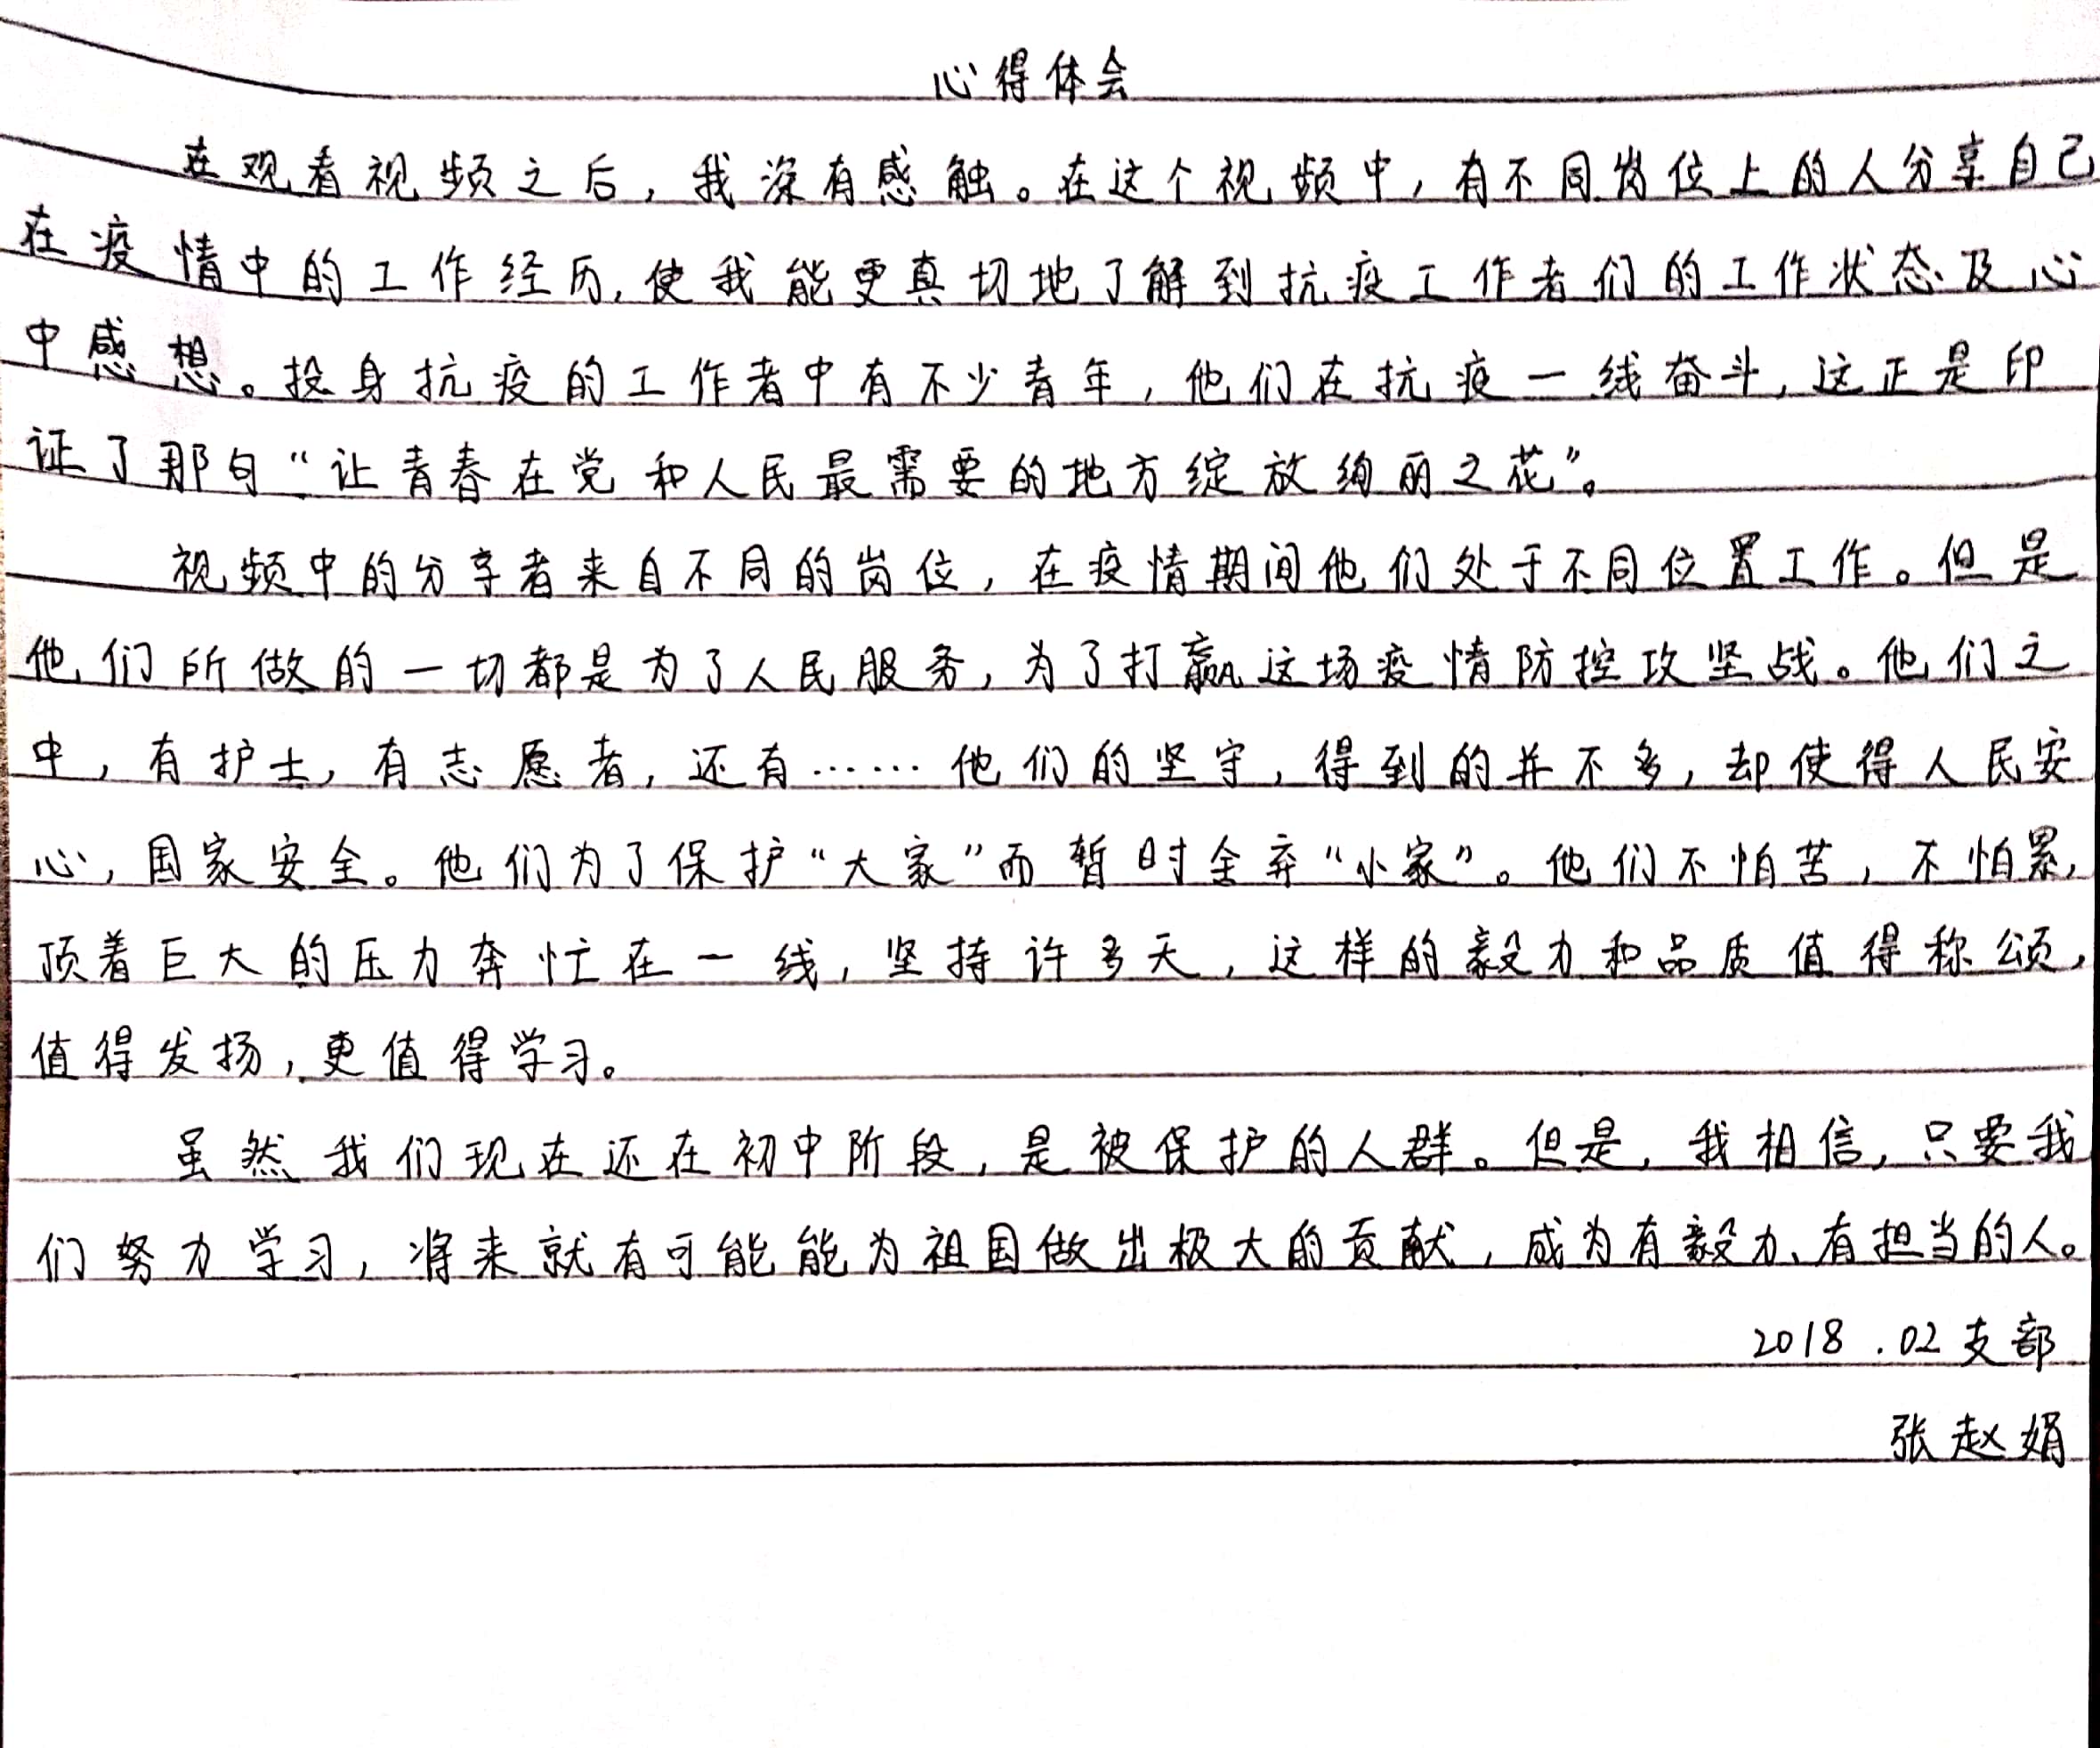 心得体会
在观看视频之后，我深有感触。在这个视频中，有不同岗位上的人分享自己
在疫情中的工作经历，使我能更真切地了解到抗疫工作者们的工作状态及心
中感想。投身抗疫的工作者中有不少青年，他们在抗疫一线奋斗，这正是印
证了那句“让青春在党和人民最需要的地方绽放绚丽之花”。
视频中的分享者来自不同的岗位，在疫情期间他们处于不同位置工作。但是
他们所做的一切都是为了人民服务，为了打赢这场疫情防控攻坚战。他们之
中，有护士，有志愿者，还有……他们的坚守，得到的并不多，却使得人民安
心，国家安全。他们为了保护“大家”而暂时舍弃“小家”。他们不怕苦，不怕累，
顶着巨大的压力奔忙在一线，坚持许多天，这样的毅力和品质值得称颂，
值得发扬，更值得学习。
虽然我们现在还在初中阶段，是被保护的人群。但是，我相信，只要我
们努力学习，将来就有可能能为祖国做出极大的贡献，成为有毅力、有担当的人。
2018.02支部
张赵娟